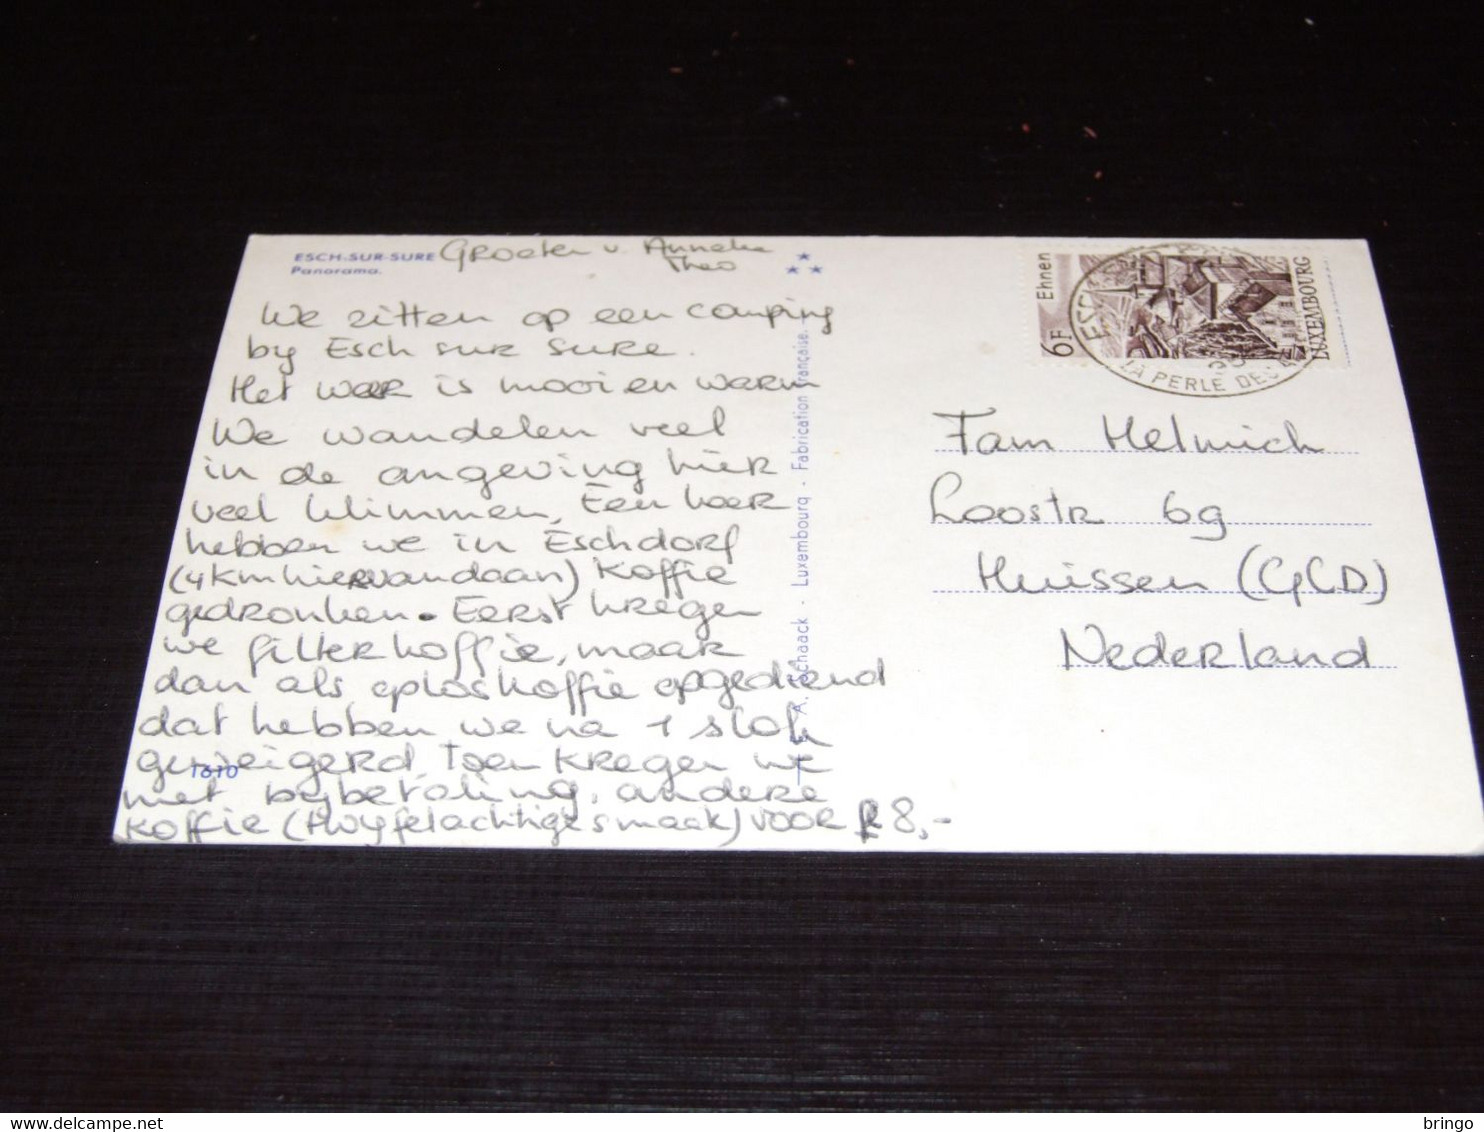 ESCH-SUR-SURE
Panorama.
Groeten v. Anneke
Theo
We zitten op een camping
by Esch sur Sure.
Het weer is mooi en warm
We wandelen veel
in de omgeving hier
veel klimmen. Een keer
hebben we in Eschdorf
(4 km hier vandaan) koffie
gedronken. Eerst kregen
we filterkoffie, maar
dan als oploskoffie opgediend
dat hebben we na 1 slok
geweigerd Toen kregen we
met bijbetaling, andere
koffie (twyfelachtige smaak) voor fr 8,-
1610
Luxembourg - Fabrication française.
Ehnen
6F
LUXEMBOURG
LA PERLE DES
Fam Helmich
Loostr 69
Huissen (GLD)
Nederland
www.delcampe.net
bringo